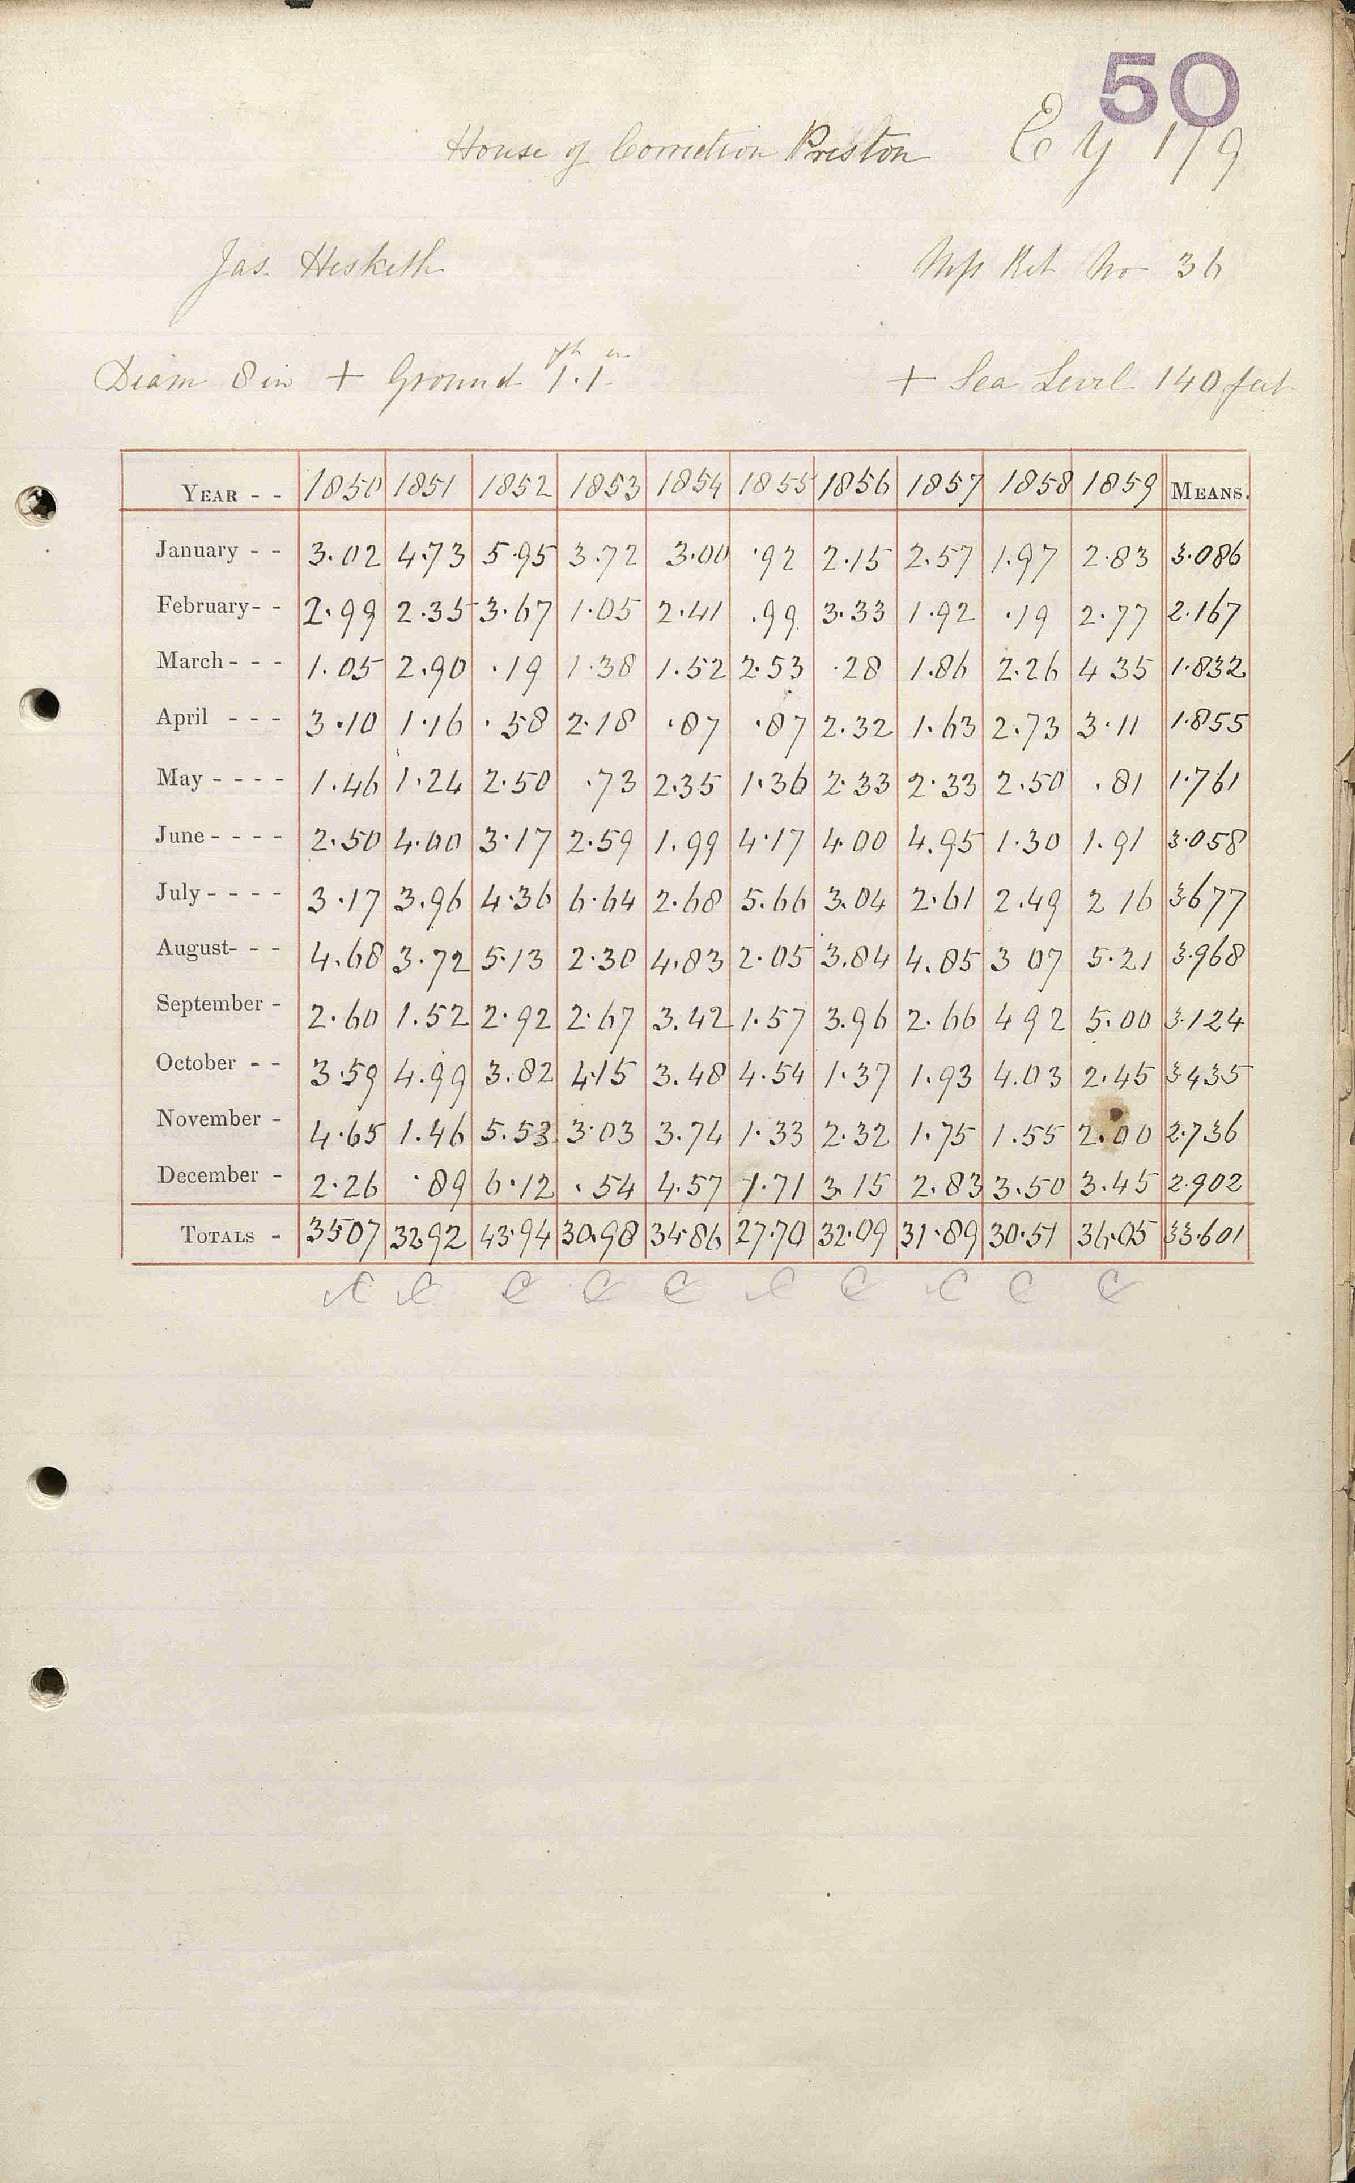 50
House of Correction Preston E y 179
Jas. Hesketh
Ret No 36
Diam 8 in + Ground 1 ft. 1 in
+ Sea Level 140 feet
YEAR - - 1850 1851 1852 1853 1854 1855 1856 1857 1858 1859 MEANS.
January - - 3.02 4.73 5.95 3.72 3.00 .92 2.15 2.57 1.97 2.83 3.086
February - - 2.99 2.35 3.67 1.05 2.41 .99 3.33 1.92 .19 2.77 2.167
March - - - 1.05 2.90 .19 1.38 1.52 2.53 .28 1.86 2.26 4 35 1.832
April - - - 3.10 1.16 .58 2.18 .87 .87 2.32 1.63 2.73 3.11 1.855
May - - - - 1.46 1.24 2.50 .73 2.35 1.36 2.33 2.33 2.50 .81 1.761
June - - - - 2.50 4.00 3.17 2.59 1.99 4.17 4.00 4.95 1.30 1.91 3.058
July - - - - 3.17 3.96 4.36 6.64 2.68 5.66 3.04 2.61 2.49 2 16 3.677
August- - - 4.68 3.72 5.13 2.30 4.83 2.05 3.84 4.85 3 07 5.21 3.968
September - 2.60 1.52 2.92 2.67 3.42 1.57 3.96 2.66 4 92 5.00 3.124
October - - 3.59 4.99 3.82 4.15 3.48 4.54 1.37 1.93 4.03 2.45 3.435
November - 4.65 1.46 5.53 3.03 3.74 1.33 2.32 1.75 1.55 2.00 2.736
December - 2.26 .89 6.12 .54 4.57 1.71 3.15 2.83 3.50 3.45 2.902
TOTALS - 35.07 32.92 43.94 30.98 34.86 27.70 32.09 31.89 30.51 36.05 33.601